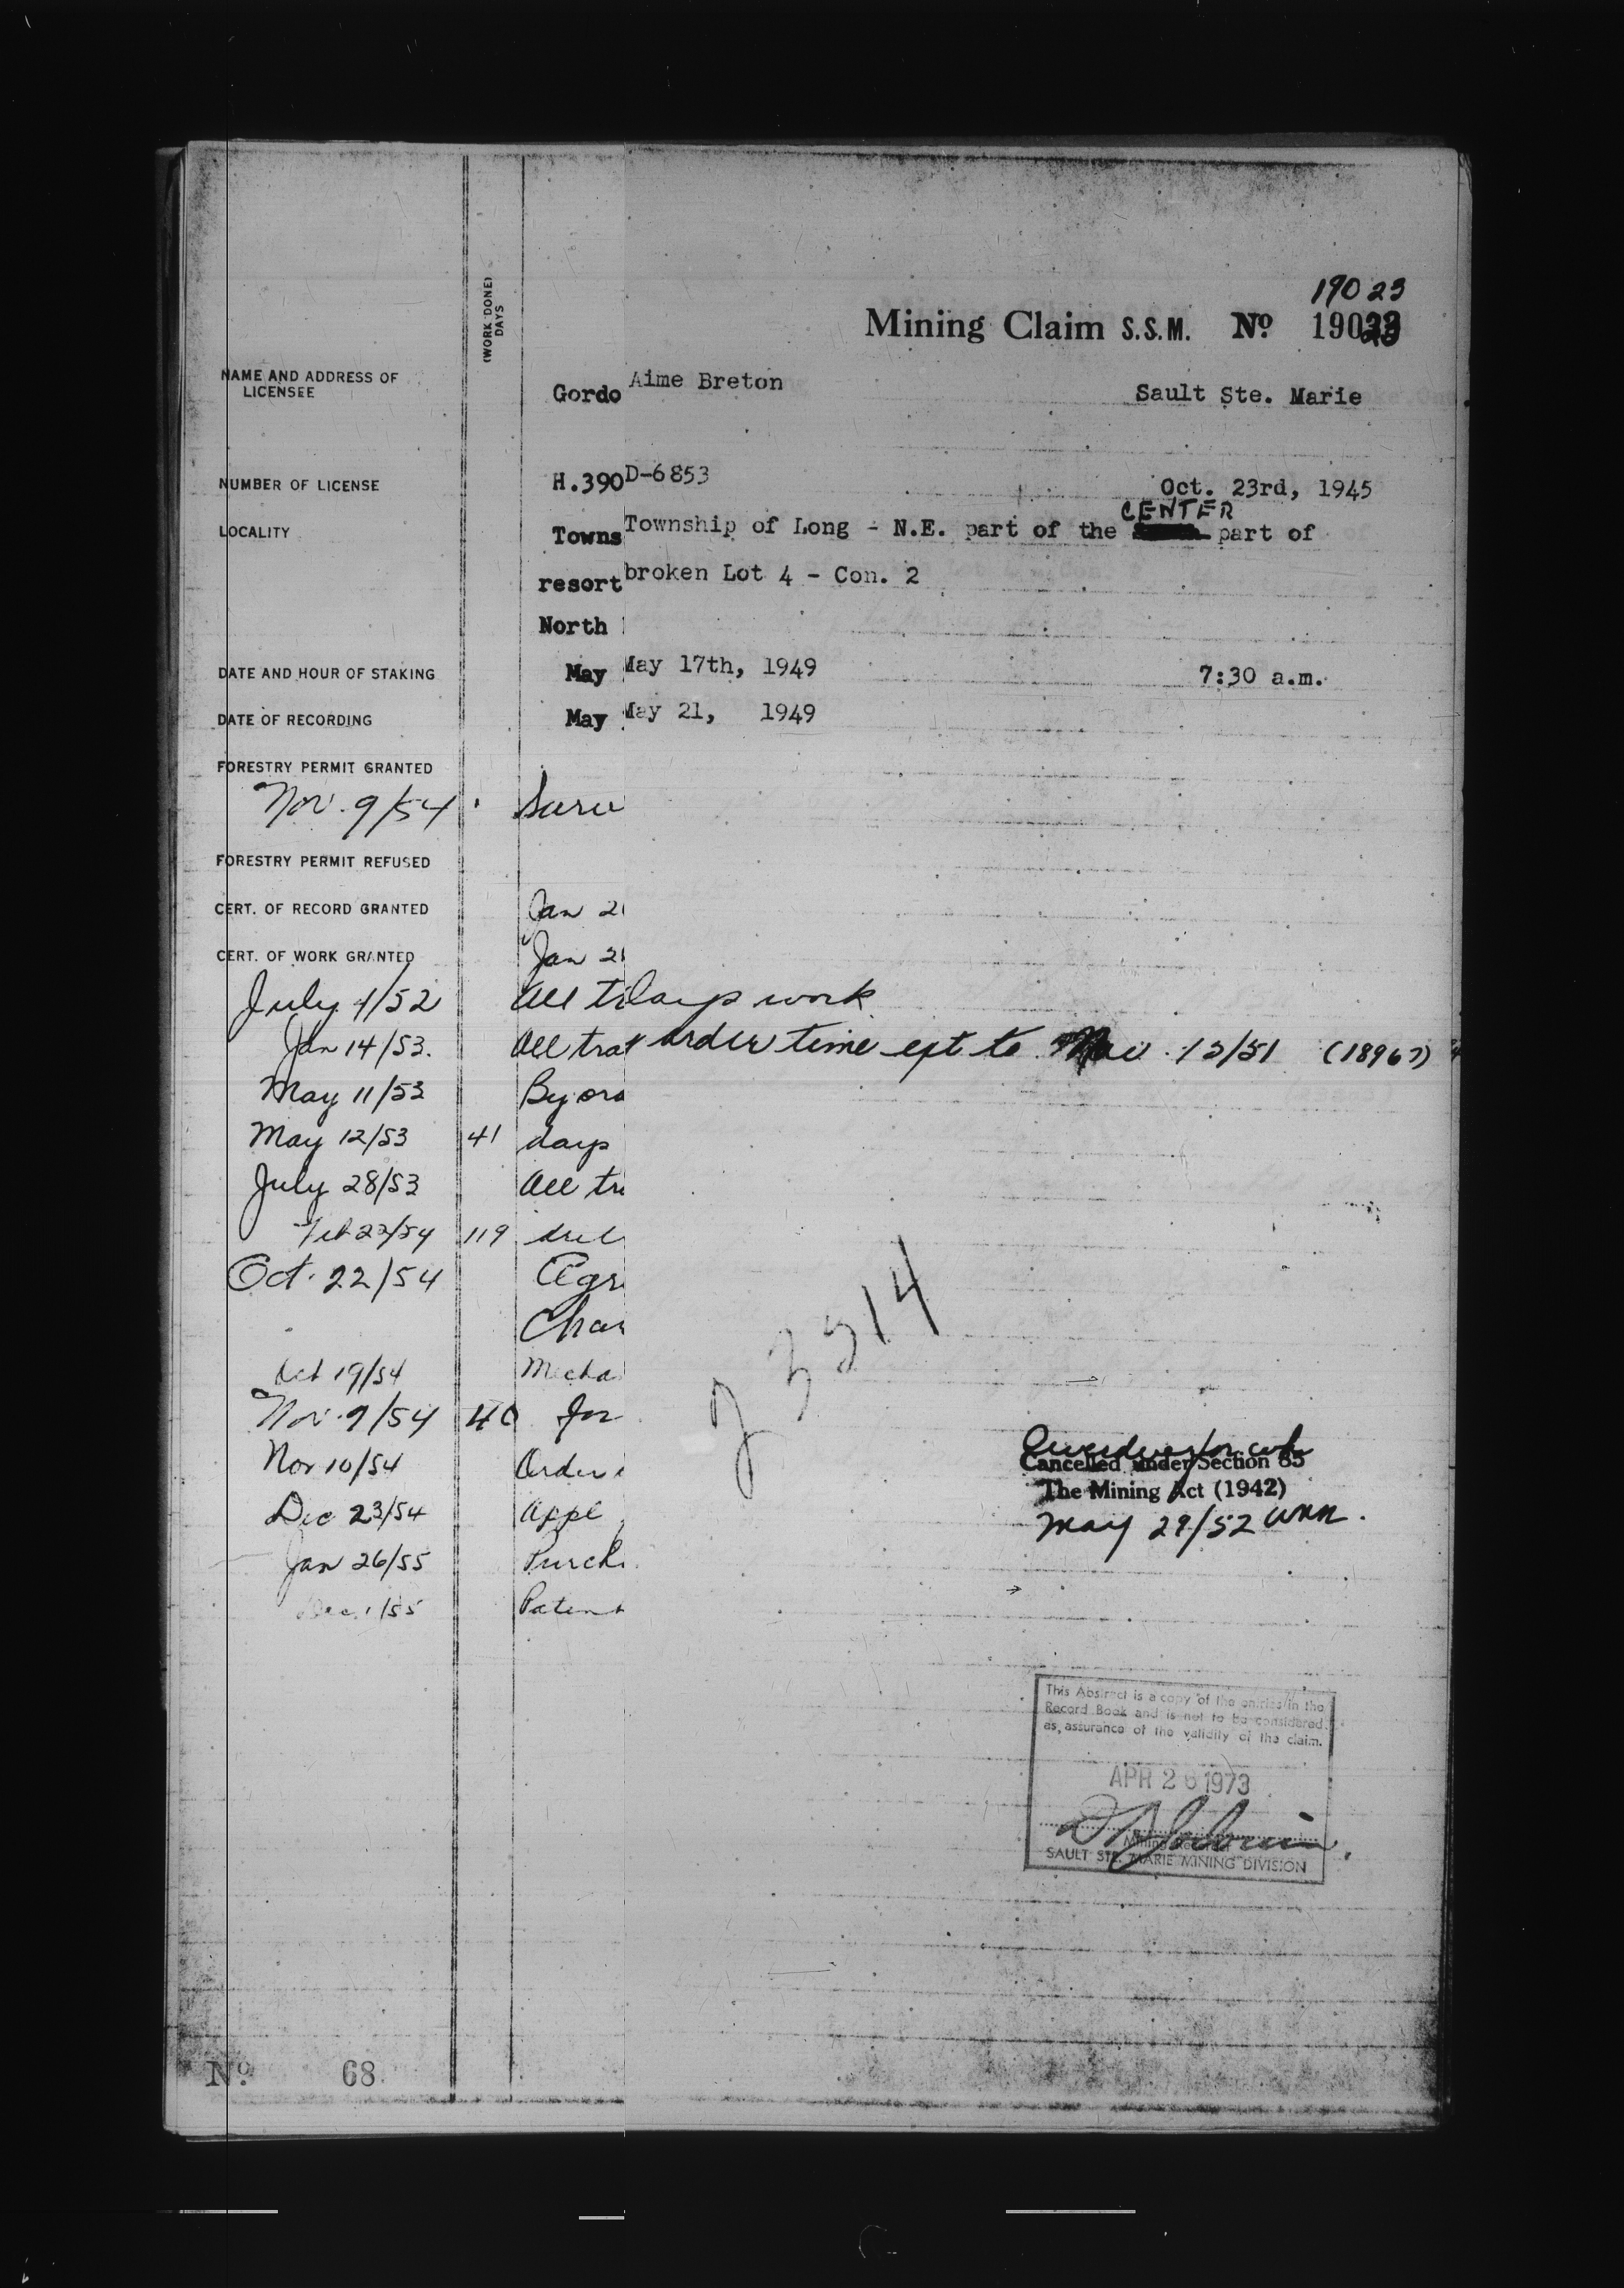 19023
Mining Claim S.S.M. No. 19023
(WORK DONE)
DAYS
NAME AND ADDRESS OF
LICENSEE
Gordo Aime Breton Sault Ste. Marie
NUMBER OF LICENSE H.390 D-6853 Oct. 23rd, 1945
CENTER
LOCALITY Towns Township of Long - N.E. part of the part of
resort broken Lot 4 - Con. 2
North
DATE AND HOUR OF STAKING May May 17th, 1949 7:30 a.m.
DATE OF RECORDING May May 21, 1949
FORESTRY PERMIT GRANTED
Nov. 9/54 Surv
FORESTRY PERMIT REFUSED
CERT. OF RECORD GRANTED Jan 2
CERT. OF WORK GRANTED Jan 2
July 4/52 All t days work
Jan 14/53. All tra order time ext. to Nov. 15/51 (18967)
May 11/53 By ord
May 12/53 41 days
July 28/53 All tr
Feb 22/54 119 dril
Oct. 22/54 Agr
Char
Oct 19/54 Mecha
Nov. 9/54 40 for
Nov 10/54 Order
Dec 23/54 Appl
Jan 26/55 Purch
Dec. 1/55 Patent
3514
Cancelled under Section 85
The Mining Act (1942)
May 29/52
This Abstract is a copy of the entries in the
Record Book and is not to be considered
as assurance of the validity of the claim.
APR 26 1973
Mining Recorder
SAULT STE. MARIE MINING DIVISION
No. 68